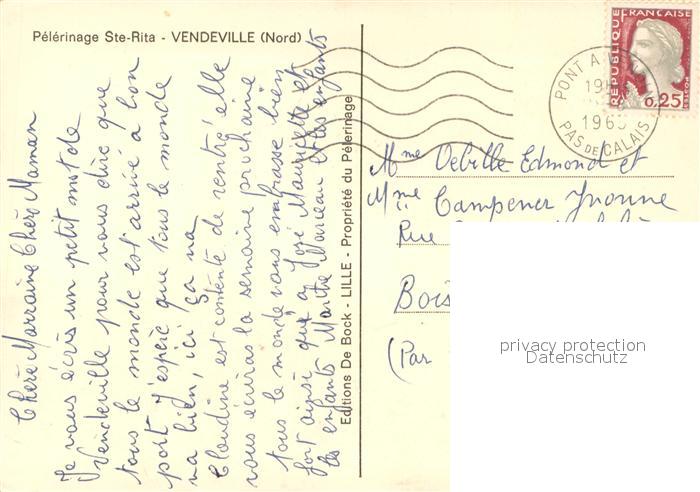 Pélérinage Ste-Rita - VENDEVILLE (Nord)
Chère Marraine Chère Maman
Je vous écris un petit mot de
Vendeville pour vous dire que
tous le monde est arrivé à bon
port j'espère que tous le monde
va bien, ici ça va
Claudine est contente de rentré elle
vous ecriras la semaine prochaine
tous le monde vous embrasse bien
fort ainsi qu'a José Mauricette et
les enfants Marthe Marceau et les enfants
Editions De Bock - LILLE - Propriété du Pélerinage
REPUBLIQUE FRANÇAISE
0,25
PONT A
196
PAS DE CALAIS
Mme Debille Edmond et
Mme Campener Yvonne
Rue
Bois
(Par
privacy protection
Datenschutz